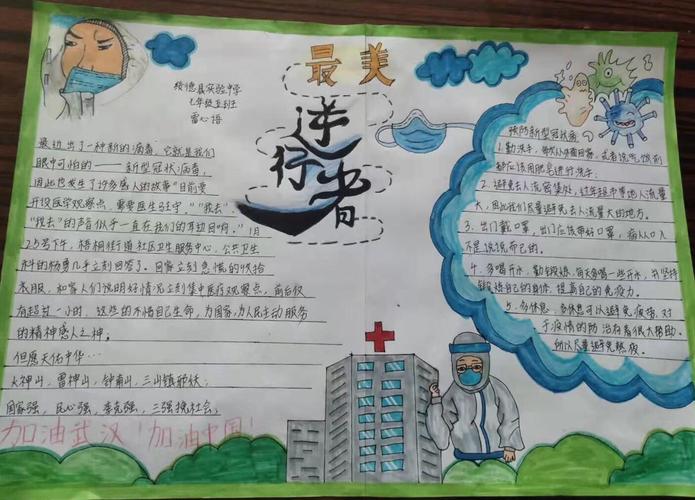 最美
逆行者
绥德县实验中学
七年级五班
雷心悟
最近出了一种新的病毒，它就是我们
眼中可怕的——新型冠状病毒，
因此也发生了许多感人的故事“目前要
开设医学观察点，需要医生驻守，”“我去，
“我去”的声音似乎一直在我们的耳边回响。”1月
25号下午，梧桐街道社区卫生服务中心，公共卫生
科的杨勇几乎立刻回答了。回家立刻急慌的收拾
衣服，和家人们说明好情况立刻集中医疗观察点，前后仅
有超过一小时，这些的不惜自己生命，为国家，为人民主动服务
的精神感人之神；
但愿天佑中华…
火神山，雷神山，钟南山，三山镇邪妖；
国家强，民心强，李克强，三强挽社会；
加油武汉！加油中国！
预防新型冠状病毒
1.勤洗手，
都应该用肥皂进行洗手.
2.避免去人流密集处，过年期中等地人流量
大，因此我们尽量避免去人流量大的地方。
3.出门戴口罩，出门应该带好口罩，病从口入
不是说说而已的。
4.多喝开水，勤锻炼，每天多喝一些开水，并坚持
锻炼自己的身体，提高自己的免疫力。
5.多休息，多休息可以避免疲倦，对
于疫情的防治有着很大帮助.
所以尽量避免熬夜。